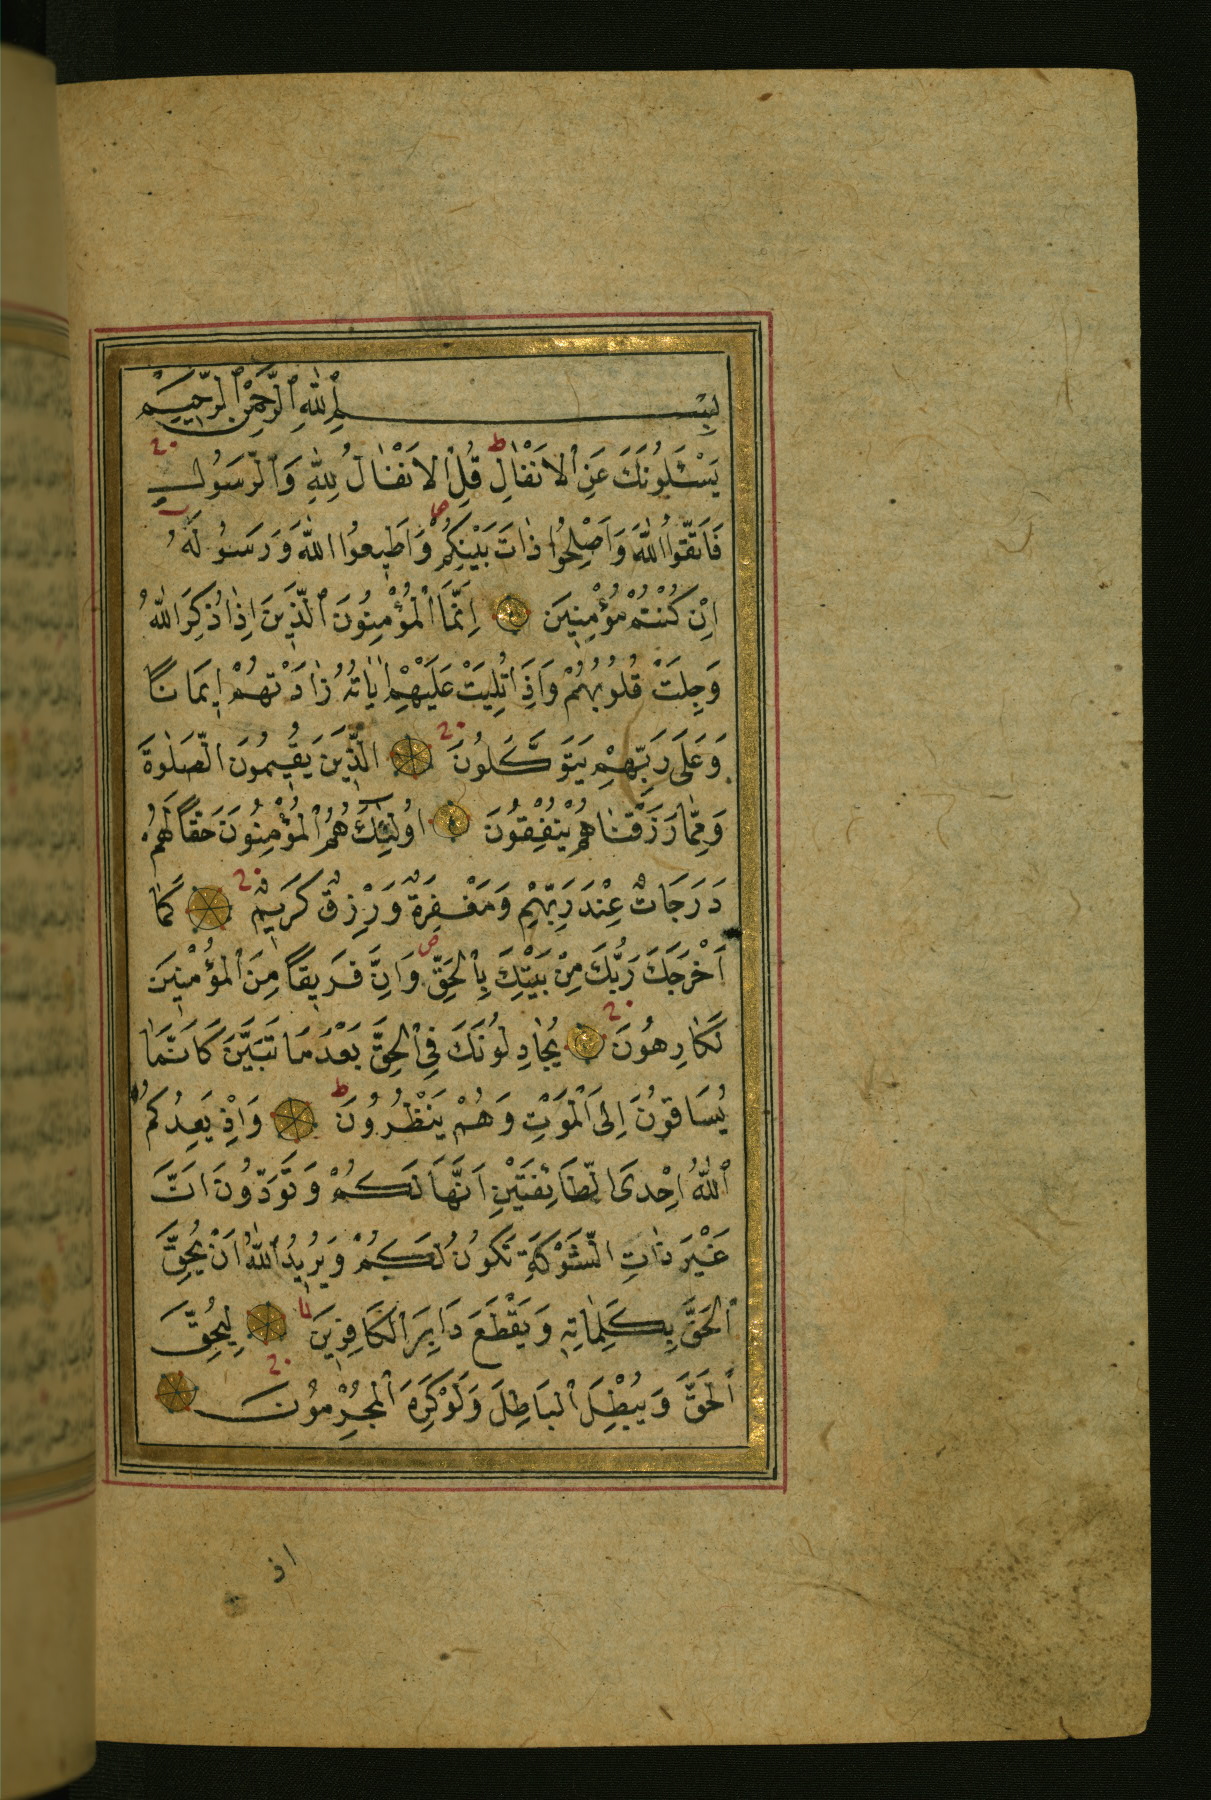 بِسْمِ اللّٰهِ الرَّحْمٰنِ الرَّحِيمِ
يَسْـَٔلُونَكَ عَنِ الْاَنْفَالِ ط قُلِ الْاَنْفَالُ لِلّٰهِ وَالرَّسُولِ
فَاتَّقُوا اللّٰهَ وَاَصْلِحُوا ذَاتَ بَيْنِكُمْ ص وَاَطِيعُوا اللّٰهَ وَرَسُولَهُ
اِنْ كُنْتُمْ مُؤْمِنِينَ اِنَّمَا الْمُؤْمِنُونَ الَّذِينَ اِذَا ذُكِرَ اللّٰهُ
وَجِلَتْ قُلُوبُهُمْ وَاِذَا تُلِيَتْ عَلَيْهِمْ اٰيَاتُهُ زَادَتْهُمْ اِيمَانًا
وَعَلَى رَبِّهِمْ يَتَوَكَّلُونَ الَّذِينَ يُقِيمُونَ الصَّلٰوةَ
وَمِمَّا رَزَقْنَاهُمْ يُنْفِقُونَ اُولٰئِكَ هُمُ الْمُؤْمِنُونَ حَقًّا لَهُمْ
دَرَجَاتٌ عِنْدَ رَبِّهِمْ وَمَغْفِرَةٌ وَرِزْقٌ كَرِيمٌ كَمَا
اَخْرَجَكَ رَبُّكَ مِنْ بَيْتِكَ بِالْحَقِّ ص وَاِنَّ فَرِيقًا مِنَ الْمُؤْمِنِينَ
لَكَارِهُونَ يُجَادِلُونَكَ فِي الْحَقِّ بَعْدَ مَا تَبَيَّنَ كَاَنَّمَا
يُسَاقُونَ اِلَى الْمَوْتِ وَهُمْ يَنْظُرُونَ ط وَاِذْ يَعِدُكُمُ
اللّٰهُ اِحْدَى الطَّائِفَتَيْنِ اَنَّهَا لَكُمْ وَتَوَدُّونَ اَنَّ
غَيْرَ ذَاتِ الشَّوْكَةِ تَكُونُ لَكُمْ وَيُرِيدُ اللّٰهُ اَنْ يُحِقَّ
الْحَقَّ بِكَلِمَاتِهِ وَيَقْطَعَ دَابِرَ الْكَافِرِينَ لا لِيُحِقَّ
الْحَقَّ وَيُبْطِلَ الْبَاطِلَ وَلَوْ كَرِهَ الْمُجْرِمُونَ
اذ